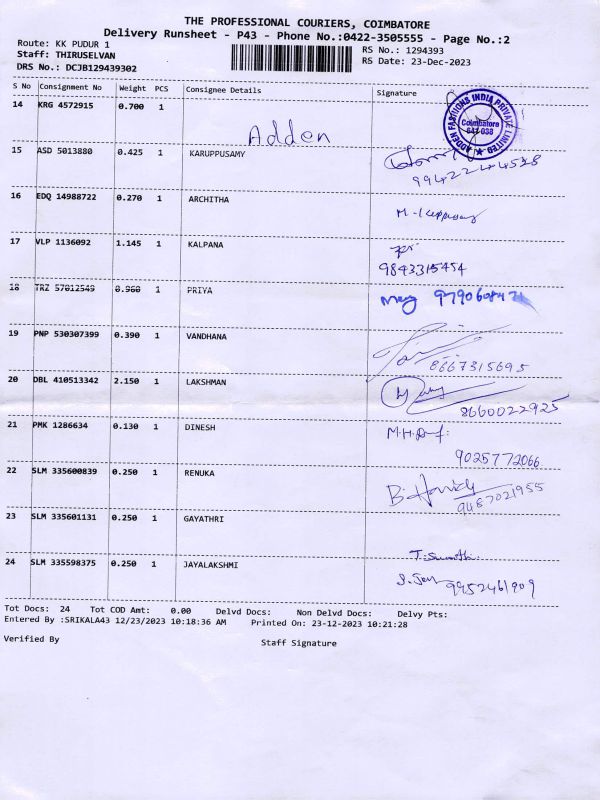 THE PROFESSIONAL COURIERS, COIMBATORE
Delivery Runsheet - P43 - Phone No.:0422-3505555 - Page No.:2
Route: KK PUDUR 1
RS No.: 1294393
Staff: THIRUSELVAN
RS Date: 23-Dec-2023
DRS No.: DCJB129439302
S No Consignment No Weight PCS Consignee Details Signature
14 KRG 4572915 0.700 1
Adden
ADDEN FASHIONS INDIA PRIVATE LIMITED
Coimbatore
641 038
15 ASD 5013880 0.425 1 KARUPPUSAMY
9942244538
16 EDQ 14988722 0.270 1 ARCHITHA
17 VLP 1136092 1.145 1 KALPANA
9843315454
18 TRZ 57012549 0.960 1 PRIYA
19 PNP 530307399 0.390 1 VANDHANA
8667315695
20 DBL 410513342 2.150 1 LAKSHMAN
8660022925
21 PMK 1286634 0.130 1 DINESH
9025772066
22 SLM 335600839 0.250 1 RENUKA
9487021955
23 SLM 335601131 0.250 1 GAYATHRI
24 SLM 335598375 0.250 1 JAYALAKSHMI
9952461909
Tot Docs: 24 Tot COD Amt: 0.00 Delvd Docs: Non Delvd Docs: Delvy Pts:
Entered By :SRIKALA43 12/23/2023 10:18:36 AM Printed On: 23-12-2023 10:21:28
Verified By Staff Signature